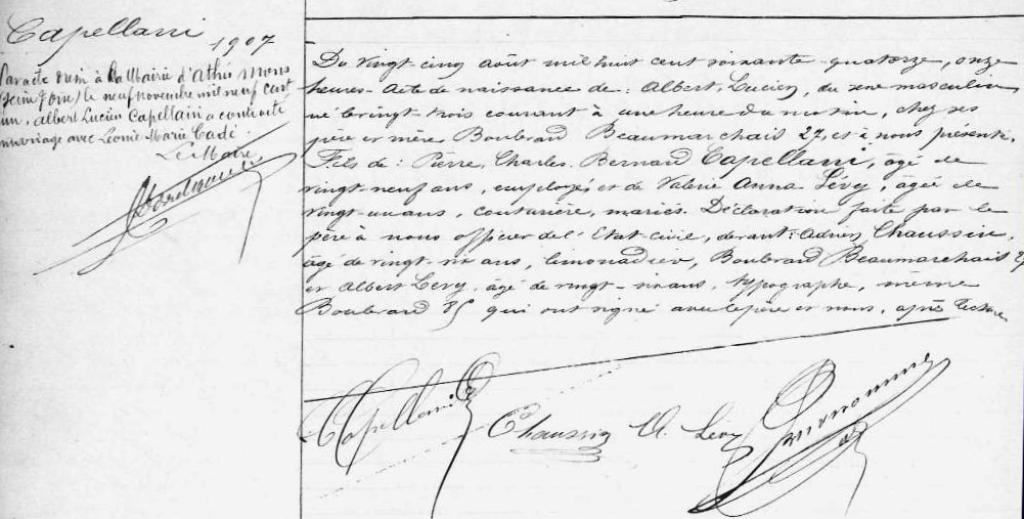 Capellani
1907
Par acte dressé à la Mairie d'Athis Mons
(Seine & Oise) le neuf novembre mil neuf cent
un, Albert Lucien Capellani a contracté
mariage avec Léonie Marie Cadé.
Le Maire
Du vingt cinq août mil huit cent soixante quatorze, onze
heures. Acte de naissance de : Albert, Lucien, du sexe masculin
né le vingt-trois courant à une heure du matin, chez ses
père et mère Boulevard Beaumarchais 27, et à nous présenté.
Fils de : Pierre, Charles, Bernard Capellani, âgé de
vingt neuf ans, employé, et de Valérie Anna Lévy, âgée de
vingt-un ans, couturière, mariés. Déclaration faite par le
père à nous officier de l'Etat-civil, devant : Adrien Chaussin,
âgé de vingt-six ans, limonadier, Boulevard Beaumarchais 27
et Albert Levy, âgé de vingt-six ans, typographe, même
Boulevard 85 qui ont signé avec le père et nous, après lecture
Capellani
Chaussin
A. Levy